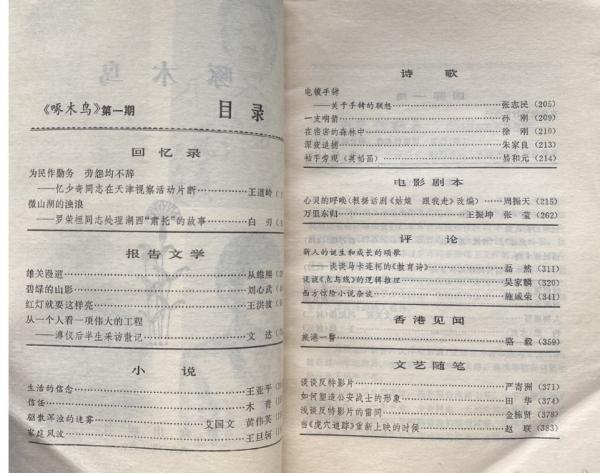 《啄木鸟》第一期
目录
回忆录
为民作勤务 劳怨均不辞
——忆少奇同志在天津视察活动片断……王道岭
微山湖的浊浪
——罗荣桓同志处理湖西“肃托”的故事……白刃
报告文学
雄关漫道……从维熙
碧绿的山影……刘心武
红灯就要这样亮……王洪波
从一个人看一项伟大的工程
——溥仪后半生采访散记……文达
小说
生活的信念……王亚平
信任……木青
驱散浑浊的迷雾……艾国文 黄伟英
家庭风波……王旦河
诗歌
电镀手铐
——关于手铐的联想……张志民(205)
一支哨箭……孙刚(209)
在密密的森林中……徐刚(210)
深夜追捕……朱家良(213)
枯手旁观(英恬菡)……易和元(214)
电影剧本
心灵的呼唤(根据话剧《姑娘 跟我走》改编)……周振天(215)
万里东归……王振坤 张莹(262)
评论
新人的诞生和成长的颂歌
——谈谈马卡连柯的《教育诗》……磊然(311)
谈谈《点与线》的逻辑推理……吴家麟(320)
西方惊险小说杂谈……施咸荣(341)
香港见闻
旅港一瞥……骆毅(359)
文艺随笔
谈谈反特影片……严寄洲(371)
如何塑造公安战士的形象……田华(374)
浅谈反特影片的雷同……金栋贤(378)
当《虎穴追踪》重新上映的时候……赵联(383)